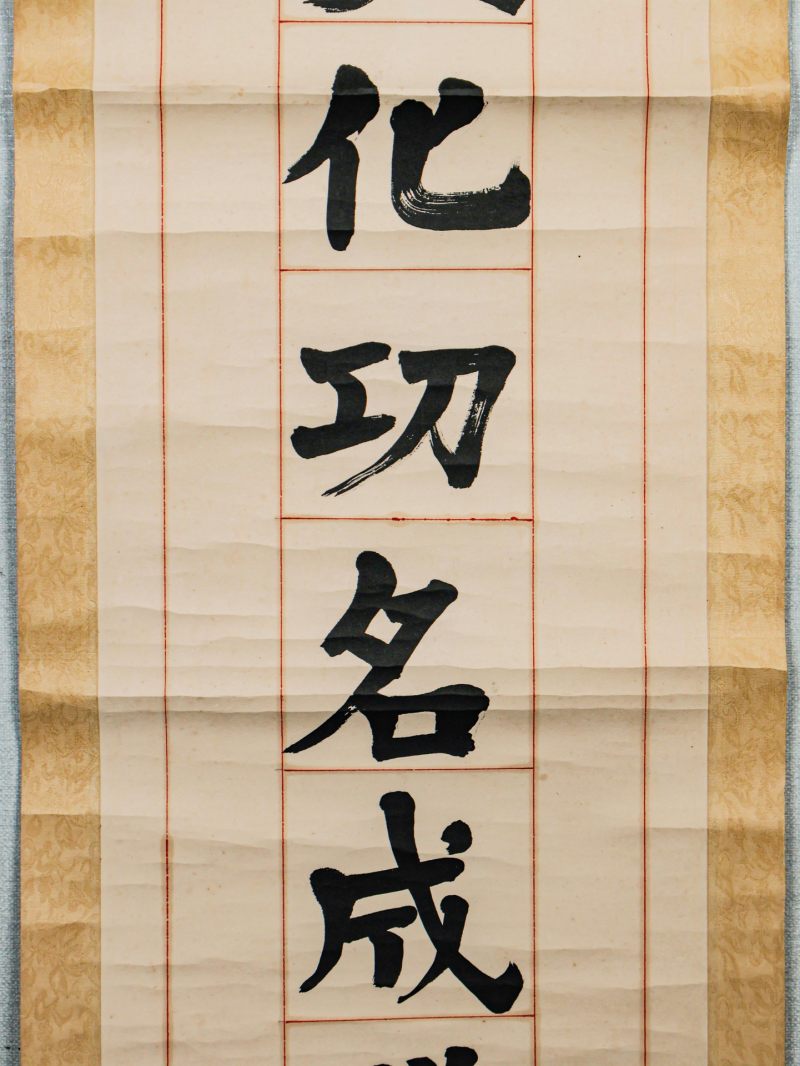 化功名成